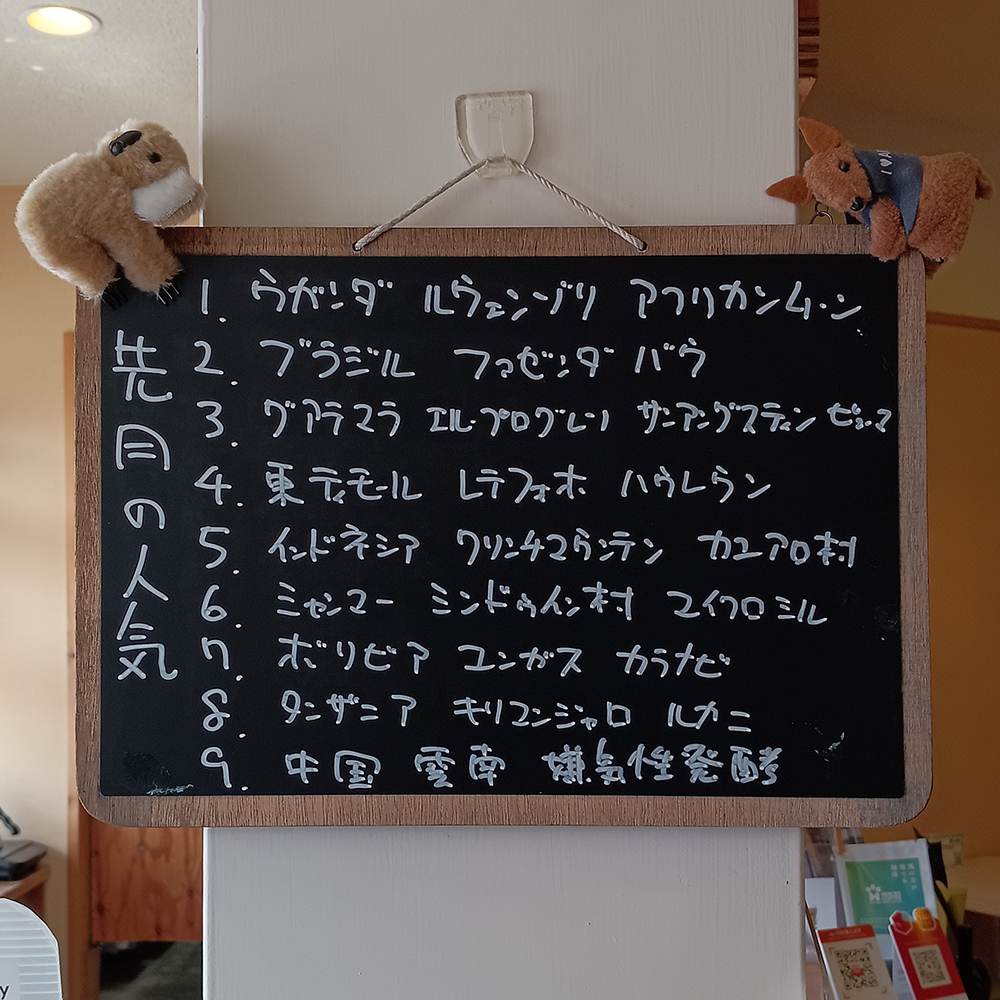 先月の人気
1. ウガンダ ルウェンゾリ アフリカンムーン
2. ブラジル ファゼンダ バウ
3. グアテマラ エル・プログレソ サンアングスティン ピューマ
4. 東ティモール レテフォホ ハウレラン
5. インドネシア クリンチマウンテン カユアロ村
6. ミャンマー ミンドゥイン村 マイクロミル
7. ボリビア ユンガス カラナビ
8. タンザニア キリマンジャロ ルカニ
9. 中国 雲南 嫌気性発酵
I ♥ A
y